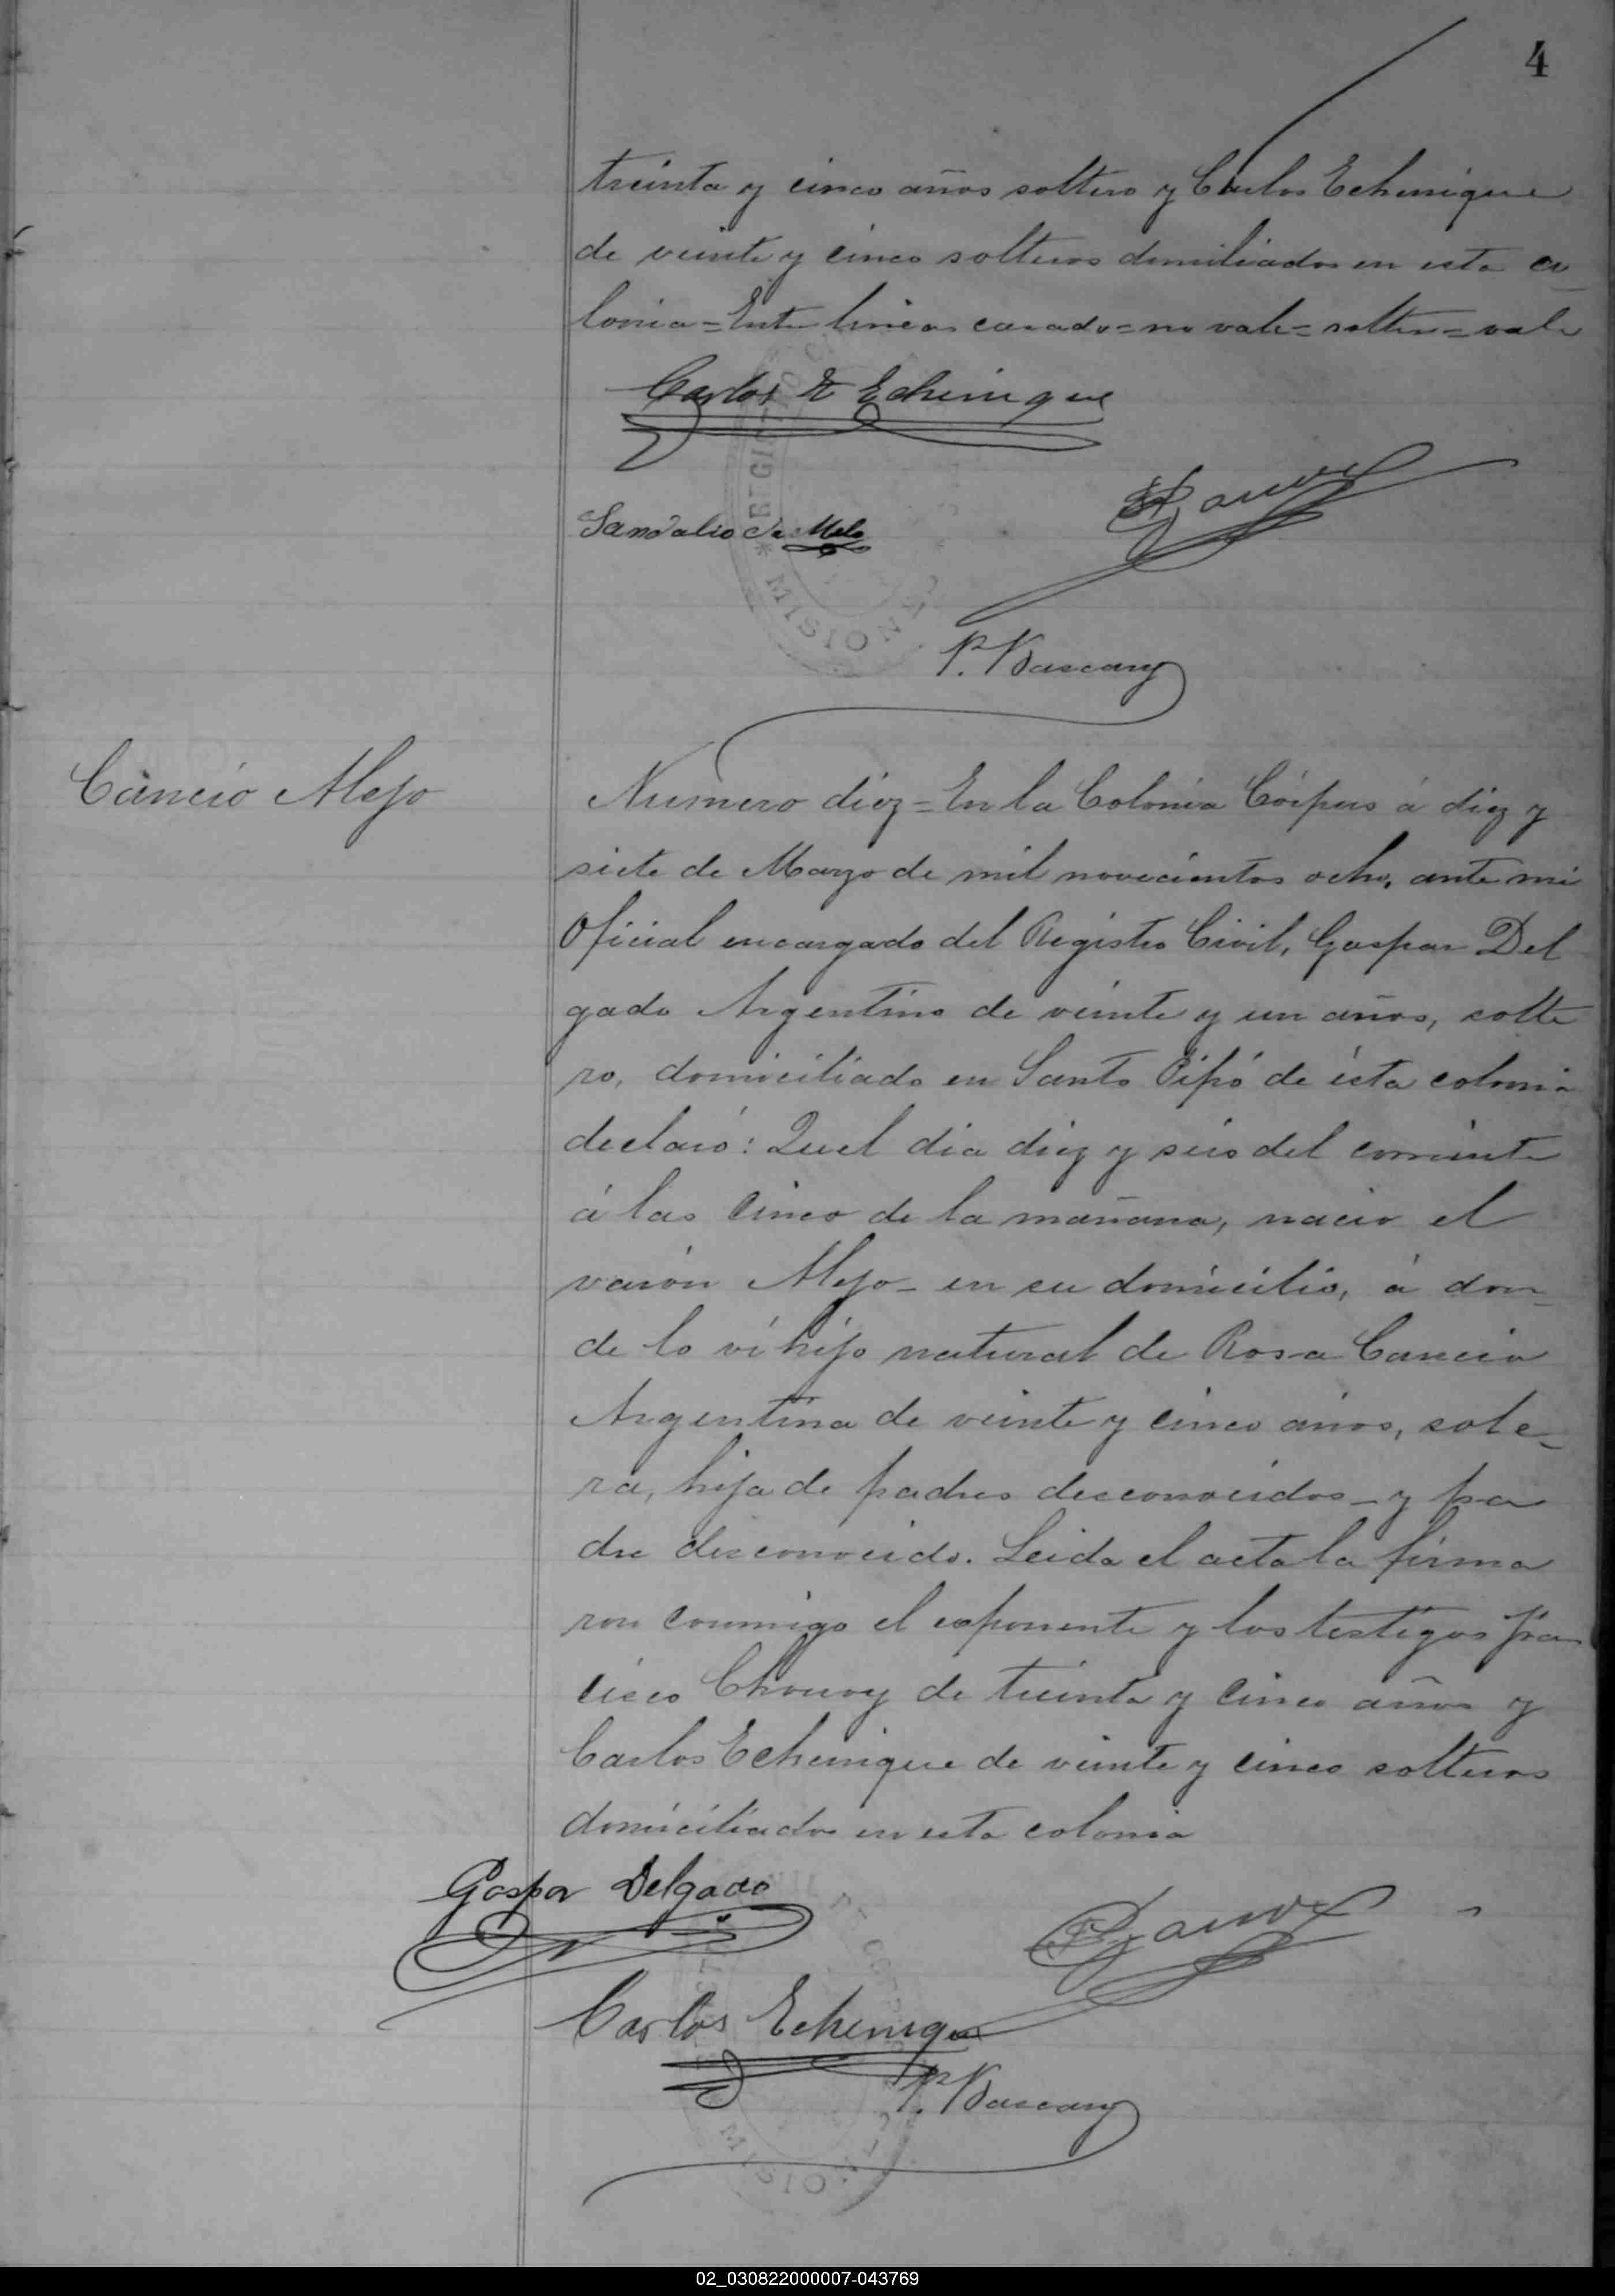 4
treinta y cinco años soltero y Carlos Echenique
de veinte y cinco solteros domiliados en esta co-
lonia=Entre lineas casado=no vale=soltero=vale
Carlos E Echenique
Sandalio de Melo
P. Bascary
MISIONES
Cancio Alejo
Numero diez=En la Colonia Córpus á diez y
siete de Marzo de mil novecientos ocho, ante mi
Oficial encargado del Registro Civil, Gaspar Del
gado Argentino de veinte y un años, solte
ro, domiciliado en Santo Pipó de ésta colonia
declaró: Quel dia diez y seis del corriente
á las cinco de la mañana, nacio el
varón Alejo- en su domicilio, á don-
de lo ví hijo natural de Rosa Cancio
Argentina de veinte y cinco años, solte-
ra, hija de padres desconocidos- y pa
dre desconocido. Leida el acta la firma
ron conmigo el exponente y los testigos Fran
cisco Chouvy de treinta y cinco años y
Carlos Echenique de veinte y cinco solteros
domiciliados en esta colonia
Gaspar Delgado
Carlos Echenique
P. Bascary
02_030822000007-043769